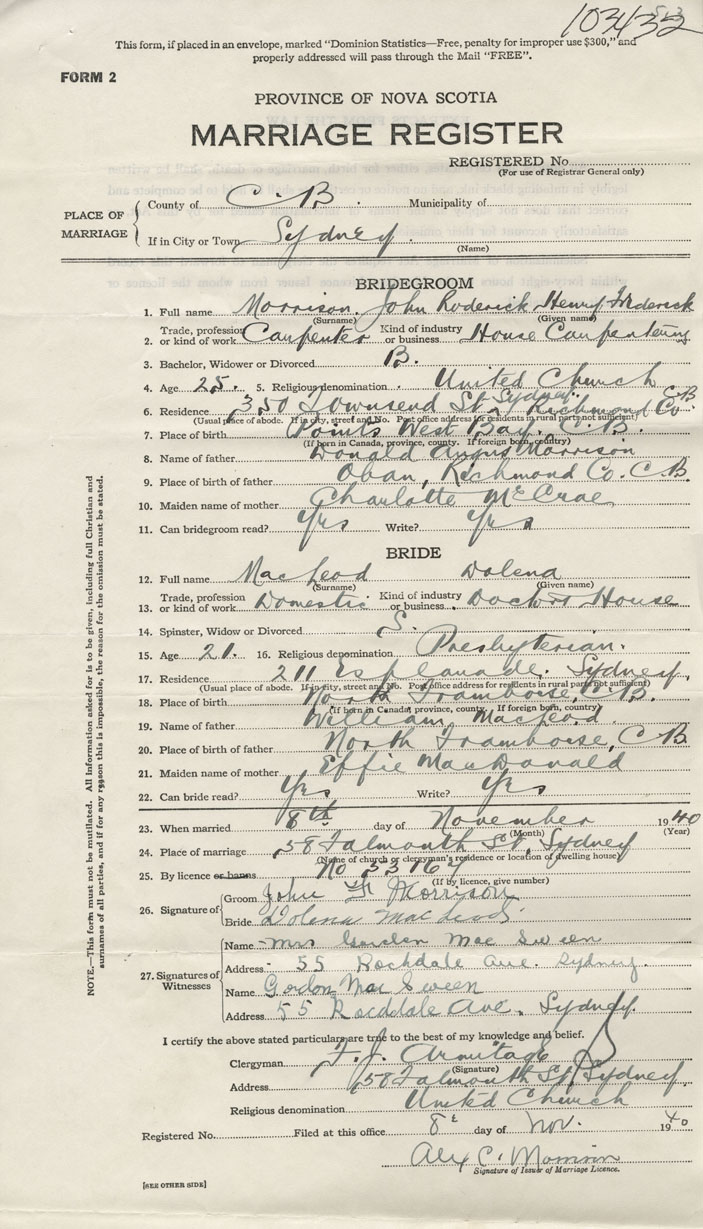 103432
This form, if placed in an envelope, marked "Dominion Statistics—Free, penalty for improper use $300," and
properly addressed will pass through the Mail "FREE".
FORM 2
PROVINCE OF NOVA SCOTIA
MARRIAGE REGISTER
REGISTERED No.
(For use of Registrar General only)
PLACE OF MARRIAGE
County of C. B. Municipality of
If in City or Town Sydney.
(Name)
BRIDEGROOM
1. Full name Morrison, John Roderick Henry Frederick
(Surname) (Given name)
2. Trade, profession or kind of work Carpenter Kind of industry or business House Carpentering
3. Bachelor, Widower or Divorced B.
4. Age 25. 5. Religious denomination United Church
6. Residence 350 Townsend St, Sydney. C B
(Usual place of abode. If in city, street and No. Post office address for residents in rural parts not sufficient)
7. Place of birth Points West Bay, Richmond Co. C. B.
(If born in Canada, province, county. If foreign born, country)
8. Name of father Donald Angus Morrison
9. Place of birth of father Oban, Richmond Co. C. B.
10. Maiden name of mother Charlotte McCrae
11. Can bridegroom read? Yes Write? Yes
BRIDE
12. Full name MacLeod Dolena
(Surname) (Given name)
13. Trade, profession or kind of work Domestic Kind of industry or business Doctor's House
14. Spinster, Widow or Divorced S.
15. Age 21. 16. Religious denomination Presbyterian.
17. Residence 211 Esplanade. Sydney,
(Usual place of abode. If in city, street and No. Post office address for residents in rural parts not sufficient)
18. Place of birth North Framboise, C. B.
(If born in Canada, province, county. If foreign born, country)
19. Name of father William MacLeod.
20. Place of birth of father North Framboise, C B
21. Maiden name of mother Effie MacDonald
22. Can bride read? Yes Write? Yes
23. When married 8th day of November 1940
(Month) (Year)
24. Place of marriage 58 Falmouth St, Sydney
(Name of church or clergyman's residence or location of dwelling house)
25. By licence or banns No
(If by licence, give number)
26. Signature of
Groom John F Morrison
Bride Dolena MacLeod
27. Signatures of Witnesses
Name Mrs Gordon Mac Sween
Address 55 Rockdale Ave. Sydney.
Name Gordon Mac Sween
Address 55 Rockdale Ave. Sydney.
I certify the above stated particulars are true to the best of my knowledge and belief.
Clergyman F. J. Armitage
(Signature)
Address 58 Falmouth St, Sydney
Religious denomination United Church
Registered No. Filed at this office 8th day of Nov. 1940
Alex C. Morrison
Signature of Issuer of Marriage Licence.
[SEE OTHER SIDE]
NOTE.—This form must not be mutilated. All information asked for is to be given, including full Christian and
surnames of all parties, and if for any reason this is impossible, the reason for the omission must be stated.